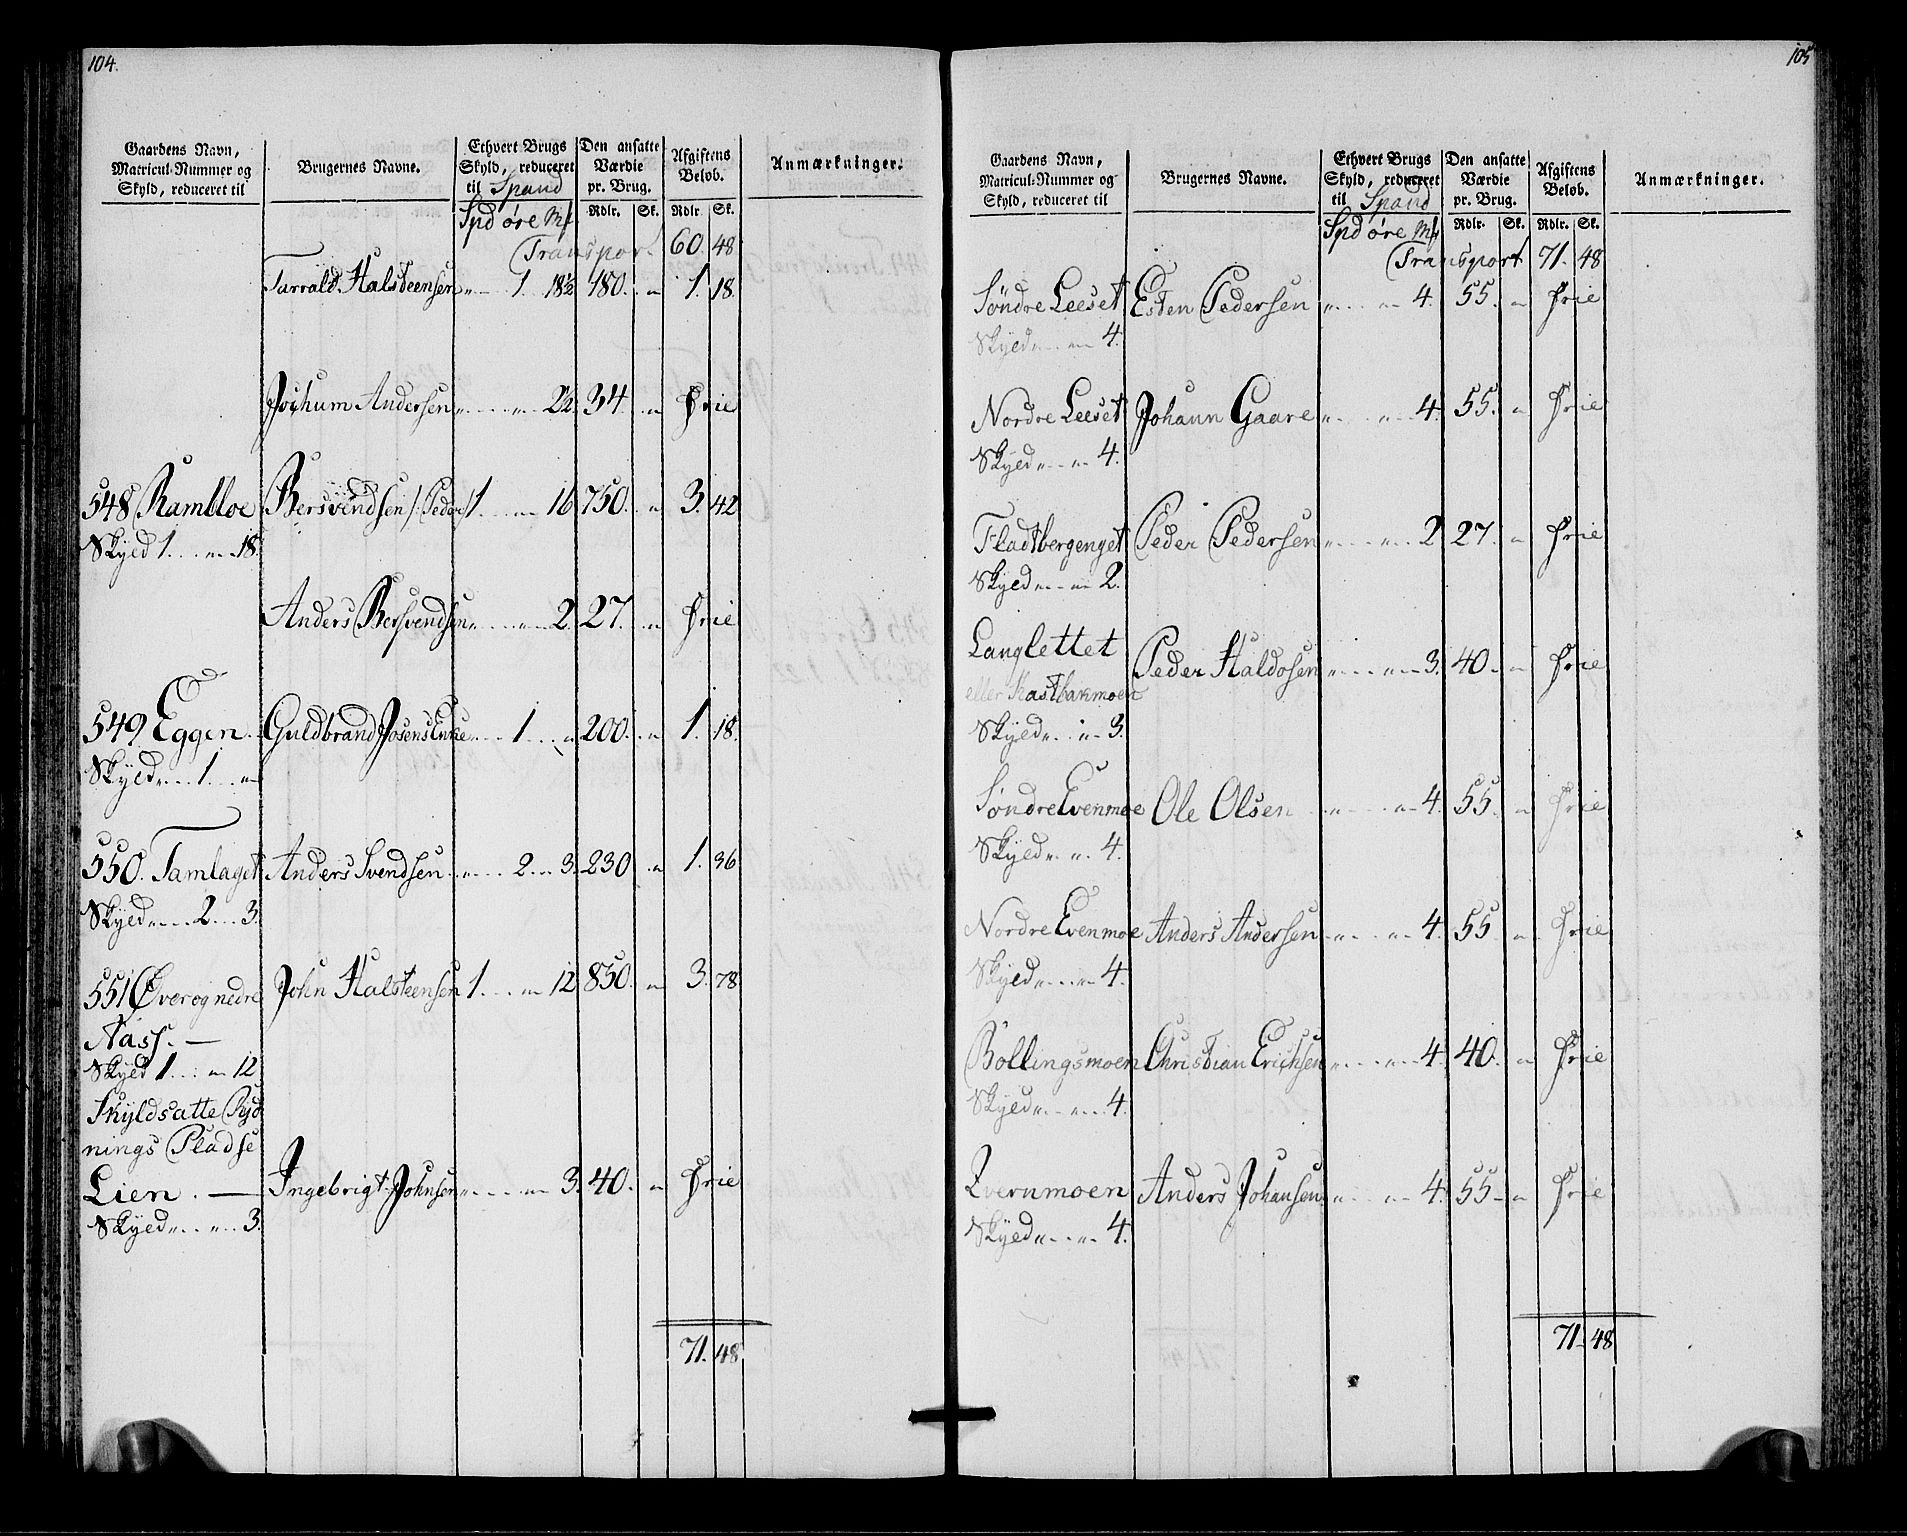 104.
Gaardens Navn, Matricul-Nummer og Skyld, reduceret til | Brugernes Navne. | Ethvert Brugs Skyld, reduceret til Spand | Den ansatte Værdie pr. Brug. | Afgiftens Beløb. | Anmærkninger.
Spd øre Mk | Rdlr. | Sk. | Rdlr. | Sk.
Transport 60. 48
Tarrald Halsteensen „ 1. 18½ 180. „ 1. 18.
Jochum Andersen „ „ 2½ 34. „ Frie
548 Rambloe Bersvendsen /: Peder 1. „ 16 750. „ 3. 42
Skyld 1. „ 18.
Anders Bersvendsen „ „ 2. 27. „ Frie
549. Eggen Guldbrand Josens Enke „ 1. „ 200. „ 1. 18.
Skyld „ 1. „
550. Tamlaget Anders Svendsen „ 2. 3. 230 „ 1. 36
Skyld „ 2. 3.
551 Øver og nedre John Halsteensen 1. „ 12. 850. „ 3. 78
Nass. —
Skyld 1. „ 12
Skyldsatte Ryd
nings Pladse
Lien. — Ingebrigt Johnsen „ „ 3. 40. „ Frie
Skyld „ „ 3.
71. 48
105
Gaardens Navn, Matricul-Nummer og Skyld, reduceret til | Brugernes Navne. | Ethvert Brugs Skyld, reduceret til Spand | Den ansatte Værdie pr. Brug. | Afgiftens Beløb. | Anmærkninger.
Spd øre Mk | Rdlr. | Sk. | Rdlr. | Sk.
Transport 71. 48
Søndre Leeset Esten Pedersen „ „ 4. 55. „ Frie
Skyld „ „ 4.
Nordre Leeset Johann Gaare „ „ 4. 55. „ Frie
Skyld „ „ 4.
Fladtbergenget Peder Pedersen „ „ 2 27. „ Frie
Skyld „ „ 2.
Langlettet Peder Haldosen „ „ 3. 40. „ Frie
eller Kastbakmoen
Skyld „ „ 3.
Søndre Evenmoe Ole Olsen „ „ 4. 55. „ Frie
Skyld „ „ 4.
Nordre Evenmoe Anders Andersen „ „ 4. 55 „ Frie
Skyld „ „ 4.
Bollingsmoen Christian Erichsen „ „ 4. 40. „ Frie
Skyld „ „ 4.
Qvernmoen Anders Johansen „ „ 4. 55 „ Frie
Skyld „ „ 4.
71. 48